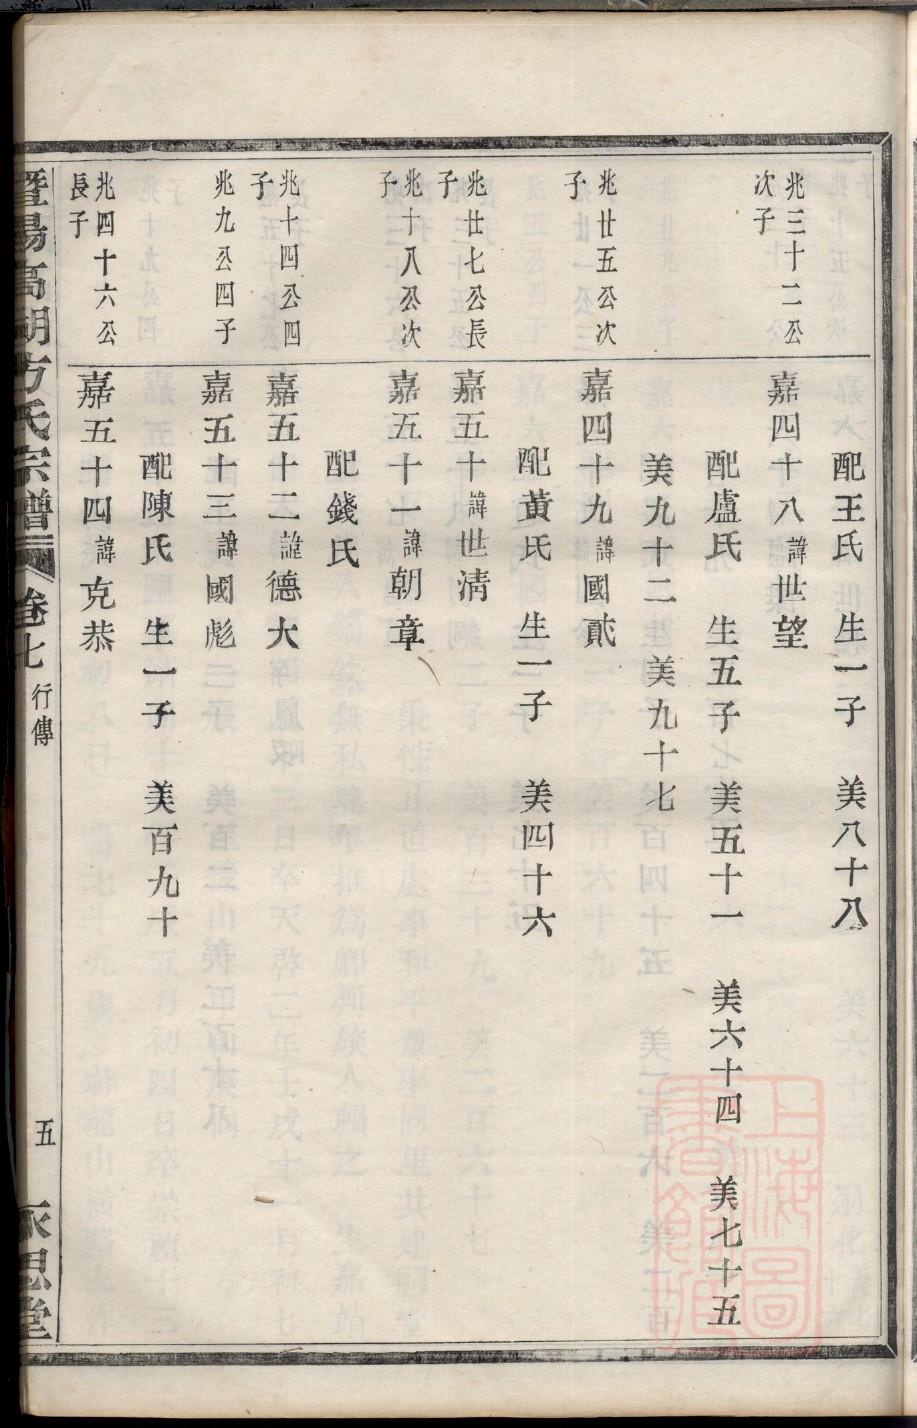 配王氏 生一子 美八十八
兆三十二公
次子
嘉四十八諱世望
配盧氏 生五子 美五十一 美六十四 美七十五
美九十二 美九十七
兆廿五公次
子
嘉四十九諱國貳
配黃氏 生一子 美四十六
兆廿七公長
子
嘉五十諱世清
兆十八公次
子
嘉五十一諱朝章
配錢氏
兆十四公四
子
嘉五十二諱德大
兆九公四子
嘉五十三諱國彪
配陳氏 生一子 美百九十
兆四十六公
長子
嘉五十四諱克恭
暨陽高湖方氏宗譜 卷七 行傳 五 永思堂